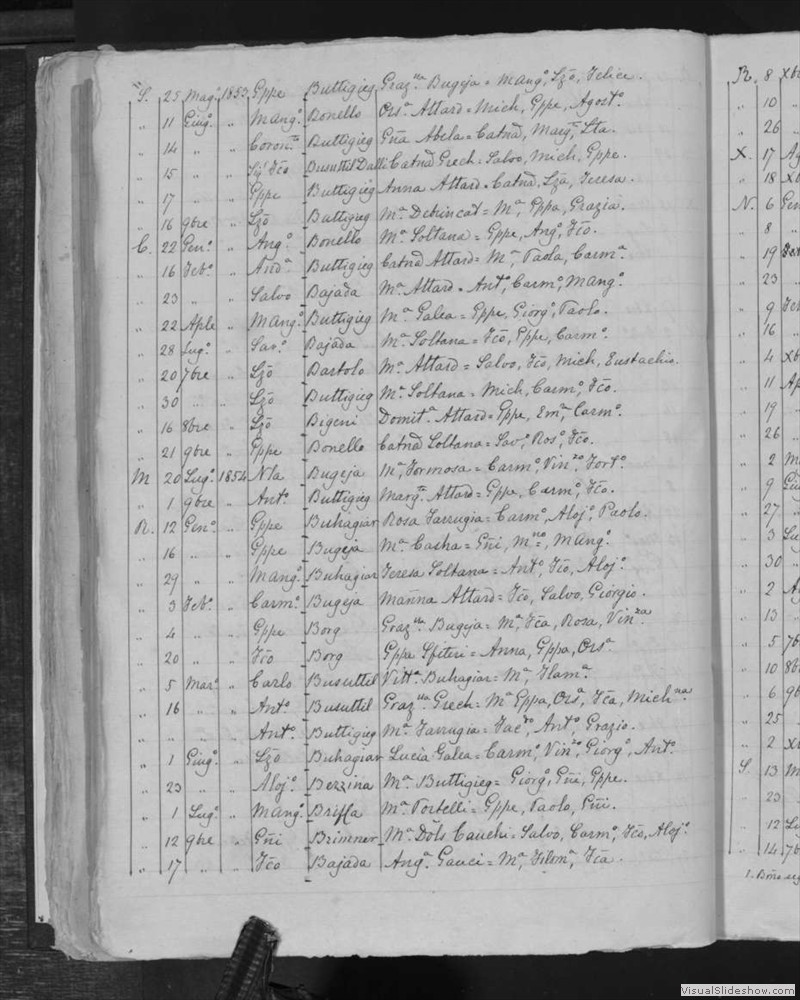 S. 25 Mag.º 1853 Gppe Buttigieg Graz.na Bugeja = Mang.º, Lzō, Felice.
„ 11 Giug.º „ Mang.º Bonello Ors.a Attard = Mich, Gppe, Agost.º
„ 14 „ „ Coron.to Buttigieg Gña Abela = Catnā, Marg.ta, Lta.
„ 15 „ „ Fčo Busuttil Dalli Catnā Grech = Salvo, Mich, Gppe.
„ 17 „ „ Gppe Buttigieg Anna Attard = Catnā, Lzā, Teresa.
„ 16 9bre „ Lzō Buttigieg M.a Debrincat = M.a, Gppa, Grazia.
C. 22 Gen.º „ Ang.º Bonello M.a Soltana = Gppe, Ang.º, Fčo.
„ 16 Feb.º „ And.a Buttigieg Catnā Attard = M.a, Paola, Carm.a
„ 23 „ „ Salvo Bajada M.a Attard = Ant.º, Carm.º, Mang.º
„ 22 Aple „ Mang.º Buttigieg M.a Galea = Gppe, Giorg.º, Paolo.
„ 28 Lug.º „ Sav.º Bajada M.a Soltana = Fčo, Gppe, Carm.º
„ 20 7bre „ Lzō Bartolo M.a Attard = Salvo, Fčo, Mich, Eustachio.
„ 30 „ „ Lzō Buttigieg M.a Soltana = Mich, Carm.º, Fčo.
„ 16 8bre „ Lzō Bigeni Domit.a Attard = Gppe, Em.l, Carm.º
„ 21 9bre „ Gppe Bonello Catnā Soltana = Sav.º, Ros.º, Fčo.
M 20 Lug.º 1854 Nla Bugeja M.a Formosa = Carm.º, Vin.zo, Fort.º
„ 1 9bre „ Ant.º Buttigieg Marg.ta Attard = Gppe, Carm.º, Fčo.
R. 12 Gen.º „ Gppe Buhagiar Rosa Farrugia = Carm.º, Aloj.º, Paolo.
„ 16 „ „ Gppe Bugeja M.a Cacha = Gñi, M.no, Mang.º
„ 29 „ „ Mang.º Buhagiar Teresa Soltana = Ant.º, Fčo, Aloj.º
„ 3 Feb.º „ Carm.º Bugeja Manna Attard = Fčo, Salvo, Giorgio.
„ 4 „ „ Gppe Borg Graz.na Bugeja = M.a, Fča, Rosa, Vin.za
„ 20 „ „ Fčo Borg Gppa Spiteri = Anna, Gppa, Ors.a
„ 5 Mar.º „ Carlo Busuttil Vitt.a Buhagiar = M.a, Filom.a
„ 16 „ „ Ant.º Busuttil Graz.na Grech = M.a Gppa, Ors.a, Fča, Mich.na
„ „ „ Ant.º Buttigieg M.a Farrugia = Ant.º, Grazio.
„ 1 Giug.º „ Lzō Buhagiar Lucia Galea = Carm.º, Vin.zo, Giorg.º, Ant.º
„ 23 „ „ Aloj.º Bezzina M.a Buttigieg = Giorg.º, Gñi, Gppe.
„ 1 Lug.º „ Mang.º Briffa M.a Portelli = Gppe, Paolo, Gñi.
„ 12 9bre „ Gñi Brimmer M.a Dōls Cauchi = Salvo, Carm.º, Fčo, Aloj.º
„ 17 „ „ Fčo Bajada Ang.a Gauci = M.a, Filom.a, Fča.
R. 8 Xbr
„ 10 „
„ 26
X. 17 Ag
„ 18 Xb
N. 6 Gen
„ 8 „
„ 19 Feb
„ 23 „
„ 9 Feb
„ 16 „
„ 4 Xb
„ 11 Ap
„ 19 „
„ 26 „
„ 2 Ma
„ 9 Giu
„ 27 „
„ 3 Lu
„ 30 „
„ 2 Ag
„ 13 „
„ 5 7b
„ 10 8b
„ 6 9b
„ 25 „
„ 2 Xb
S. 13 M
„ 23 „
„ 12 Lu
„ 14 7b
VisualSlideshow.com